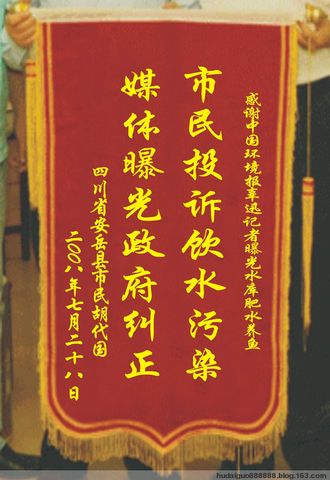 感谢中国环境报章迅记者曝光水库肥水养鱼
市民投诉饮水污染
媒体曝光政府纠正
四川省安岳县市民胡代国
二〇〇八年七月二十八日
hudaiguo888888.blog.163.com